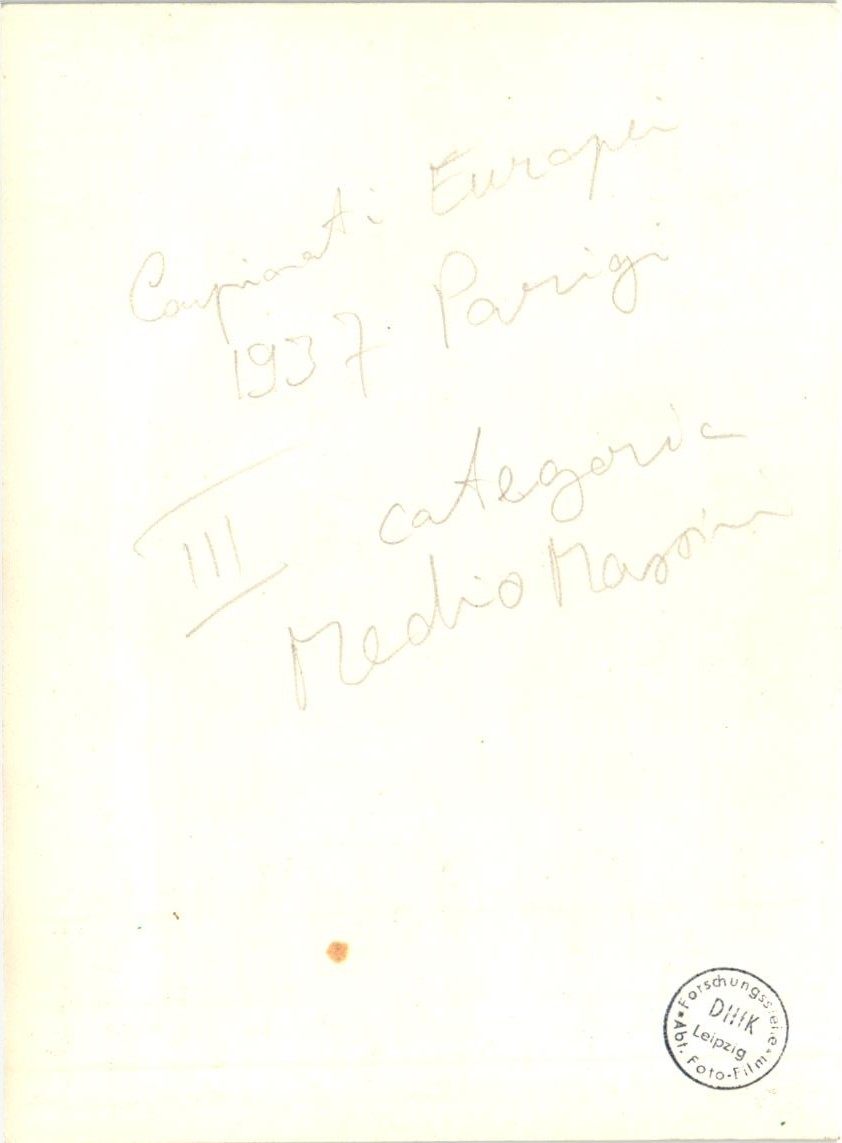 Campionati Europei
1937 Parigi
III categoria
Medio Massimi
Forschungsstelle
DHfK
Leipzig
Abt. Foto-Film